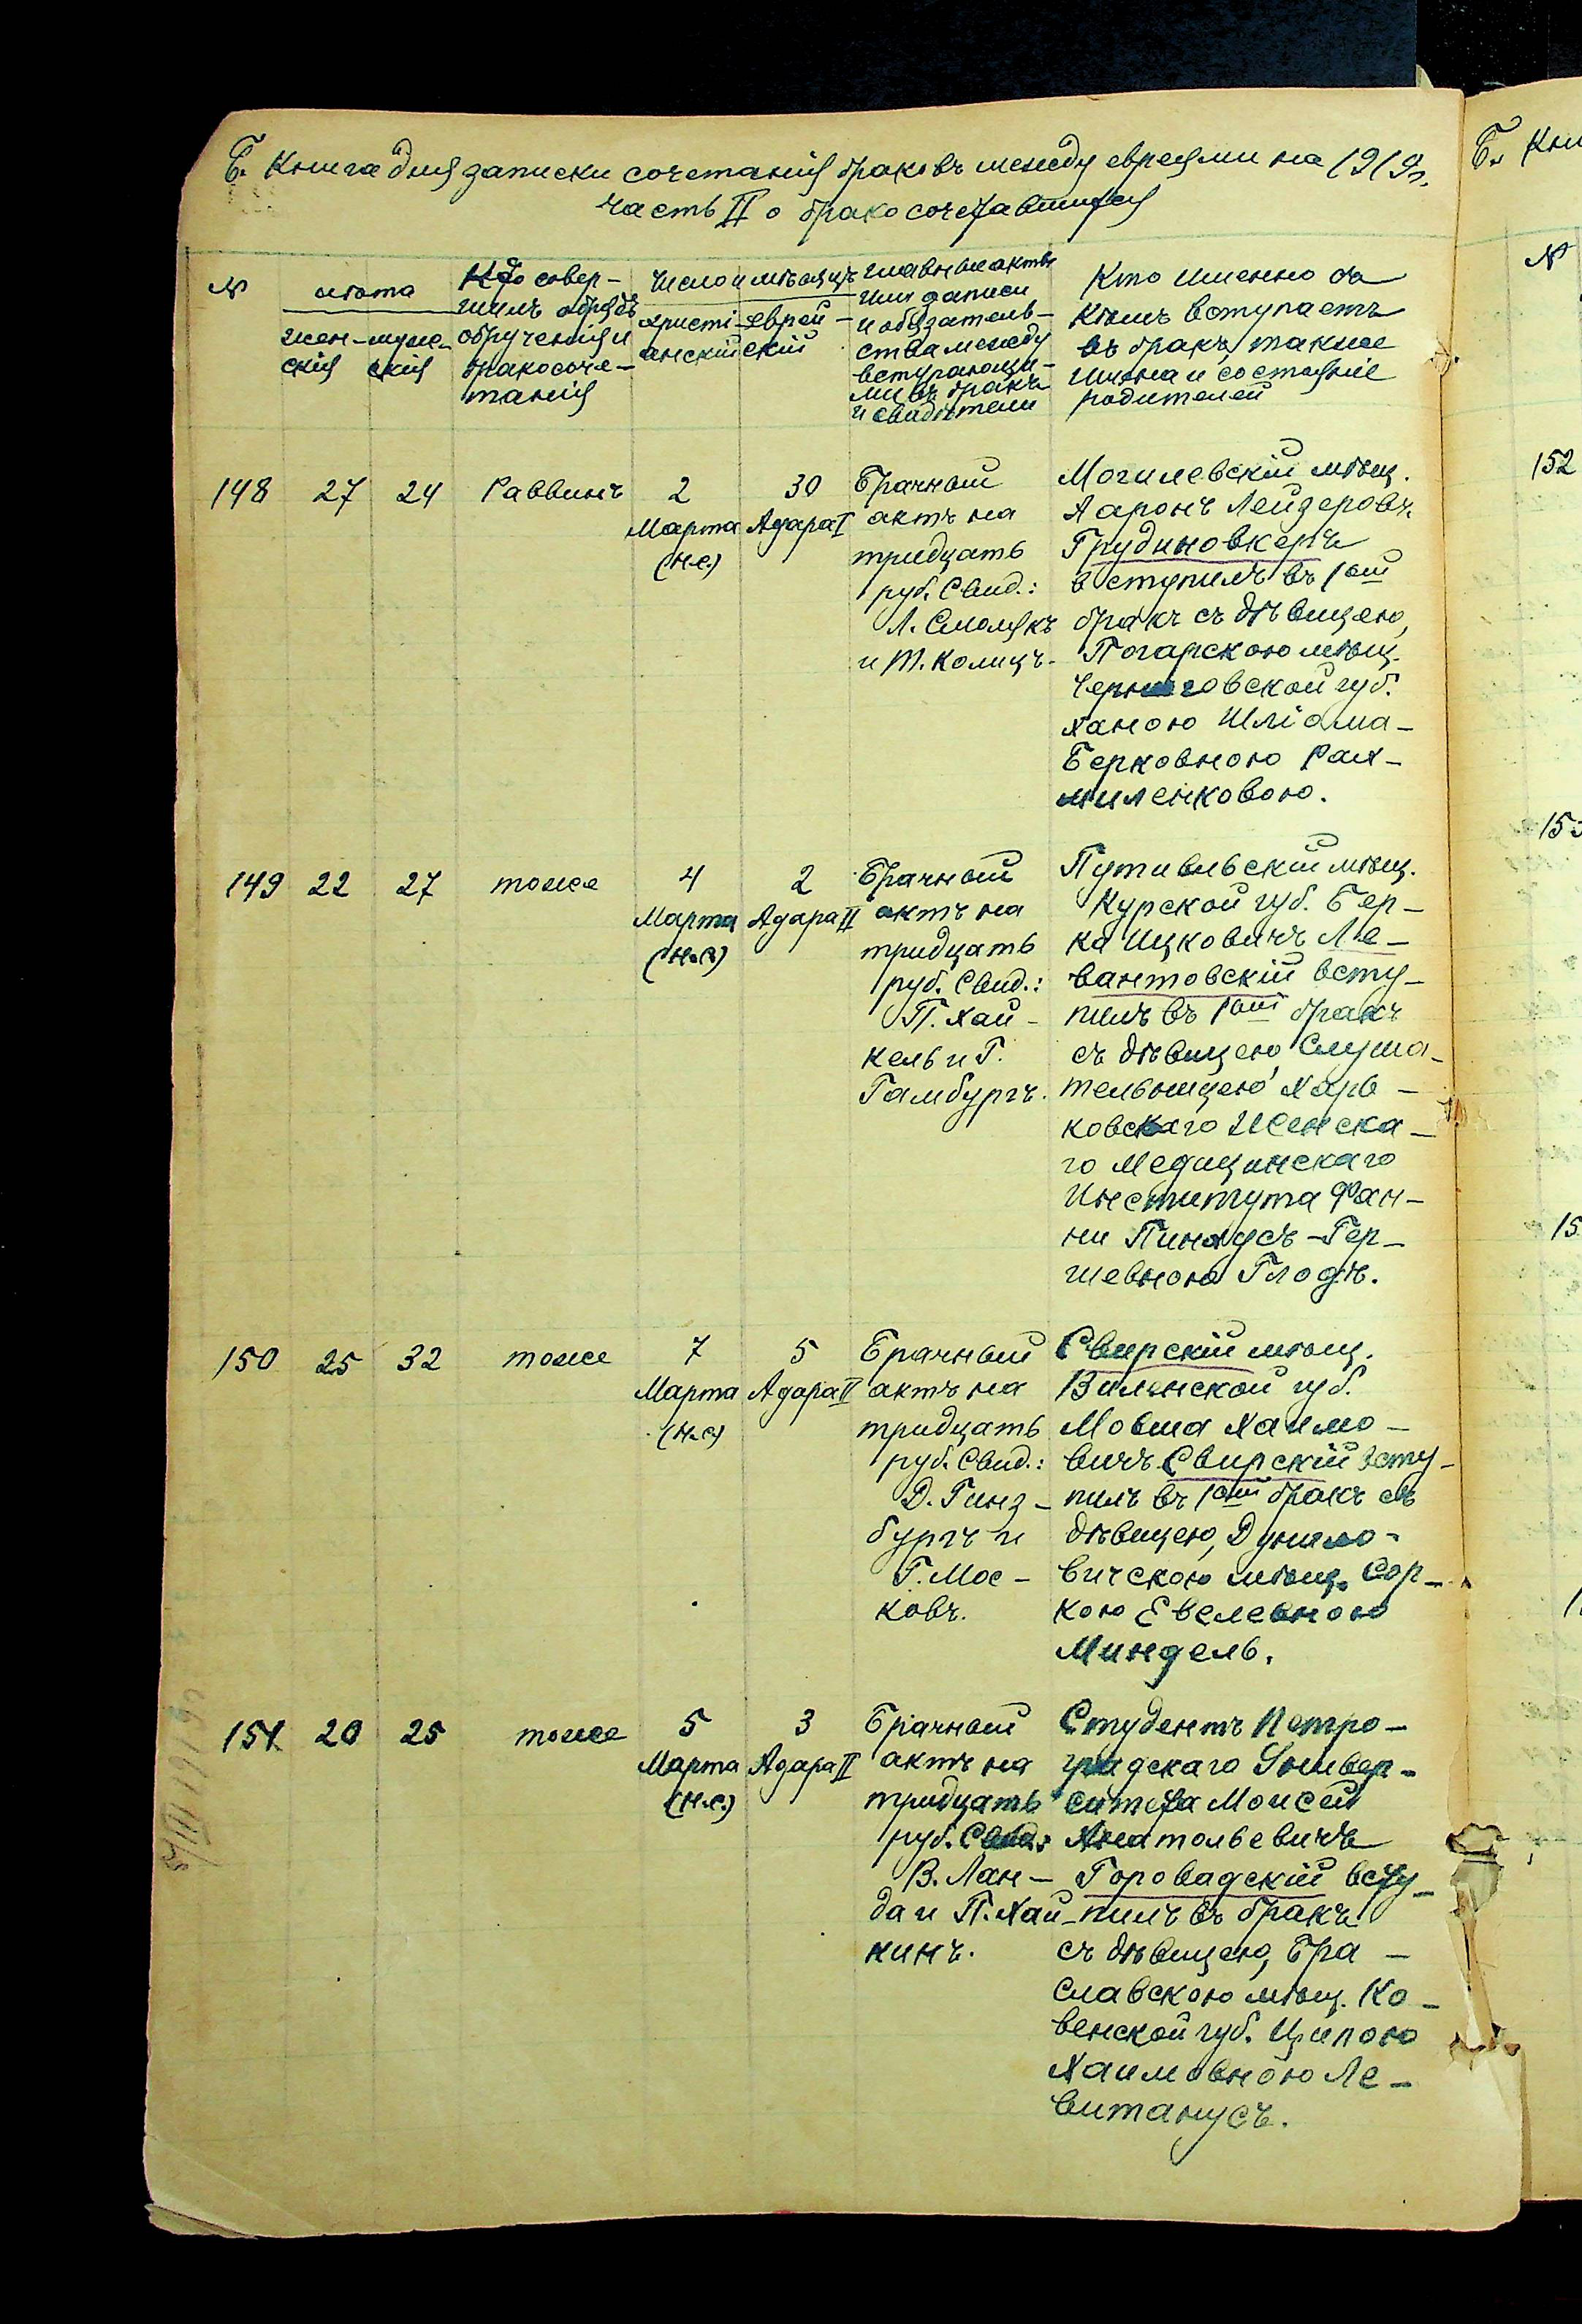 Б. Книга для записки сочетанія браковъ между евреями на 1919 г.
Часть II о бракосочетавшихся
№
лѣта
жен-
скія
муж-
скія
Кто совер-
шилъ обрядъ
обрученія и
бракосоче-
танія
Число и мѣсяцъ
христі-
анскій
еврей-
скій
Главные акты
или записи
и обязатель-
ства между
вступающи-
ми въ бракъ
и свидѣтели
Кто именно съ
кѣмъ вступаетъ
въ бракъ, также
имена и состояніе
родителей
148
27
24
Раввинъ
2
Марта
(н.с.)
30
Адара I
Брачный
актъ на
тридцать
руб. Свид.:
Л. Смолякъ
и М. Колицъ.
Могилевскій мѣщ.
Ааронъ Лейзеровъ
Грудиновкеръ
вступилъ въ 1ой
бракъ съ дѣвицею,
Погарскою мѣщ.
Черниговской губ.
Ханою Шліома-
Берковною Рах-
миленковою.
149
22
27
тоже
4
Марта
(н.с.)
2
Адара II
Брачный
актъ на
тридцать
руб. Свид.:
П. Хай-
кель и Г.
Гамбургъ.
Путивльскій мѣщ.
Курской губ. Бер-
ка Ицковичъ Ле-
вантовскій всту-
пилъ въ 1ый бракъ
съ дѣвицею, слуша-
тельницею Харь-
ковскаго Женска-
го Медицинскаго
Института Фан-
ни Пинхусъ-Гер-
шевною Глодъ.
150
25
32
тоже
7
Марта
(н.с.)
5
Адара II
Брачный
актъ на
тридцать
руб. Свид.:
Д. Гинз-
бургъ и
Г. Мос-
ковъ.
Свирскій мѣщ.
Виленской губ.
Мовша Хаимо-
вичъ Свирскій всту-
пилъ въ 1ый бракъ съ
дѣвицею, Дунило-
вичскою мѣщ. Сор-
кою Евелевною
Миндель.
151
20
25
тоже
5
Марта
(н.с.)
3
Адара II
Брачный
актъ на
тридцать
руб. Свид.:
В. Лан-
да и П. Хай-
кинъ.
Студентъ Петро-
градскаго Универ-
ситета Моисей
Анатольевичъ
Горовадскій всту-
пилъ въ бракъ
съ дѣвицею, Бра-
славскою мѣщ. Ко-
венской губ. Ципою
Хаимовною Ле-
витанусъ.
Б. Кни
№
152